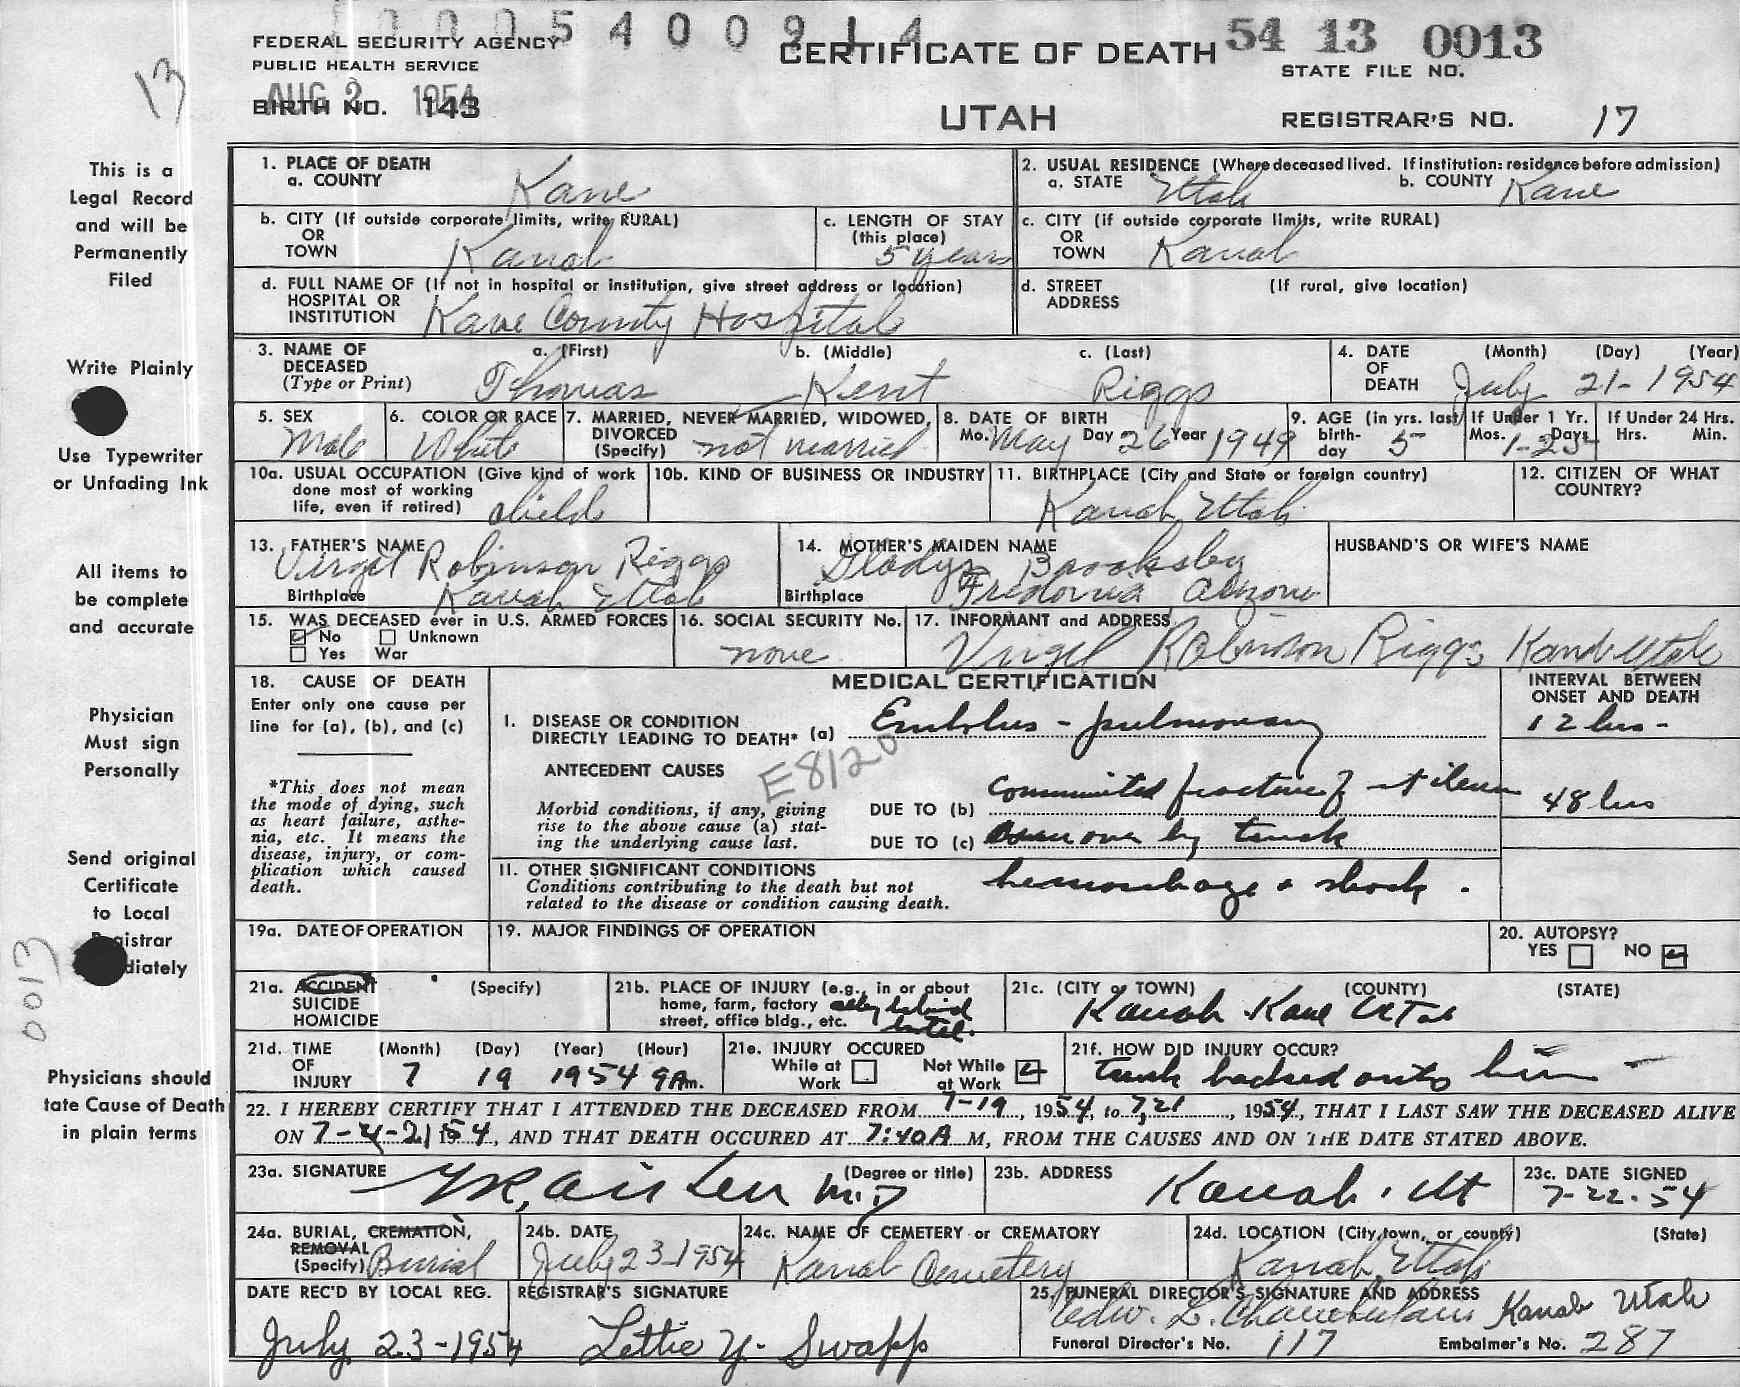 10005400914
FEDERAL SECURITY AGENCY
PUBLIC HEALTH SERVICE
AUG 2 1954
BIRTH NO. 143
CERTIFICATE OF DEATH
UTAH
54 13 0013
STATE FILE NO.
REGISTRAR'S NO. 17
13
This is a
Legal Record
and will be
Permanently
Filed
Write Plainly
Use Typewriter
or Unfading Ink
All items to
be complete
and accurate
Physician
Must sign
Personally
Send original
Certificate
to Local
diately
0013
Physicians should
tate Cause of Death
in plain terms
1. PLACE OF DEATH
a. COUNTY Kane
2. USUAL RESIDENCE (Where deceased lived. If institution: residence before admission)
a. STATE Utah b. COUNTY Kane
b. CITY (If outside corporate limits, write RURAL)
OR
TOWN Kanab
c. LENGTH OF STAY
(this place)
5 years
c. CITY (if outside corporate limits, write RURAL)
OR
TOWN Kanab
d. FULL NAME OF (If not in hospital or institution, give street address or location)
HOSPITAL OR
INSTITUTION Kane County Hospital
d. STREET (If rural, give location)
ADDRESS
3. NAME OF DECEASED (Type or Print)
a. (First) b. (Middle) c. (Last)
Thomas Kent Riggs
4. DATE OF DEATH (Month) (Day) (Year)
July 21-1954
5. SEX
Male
6. COLOR OR RACE
White
7. MARRIED, NEVER MARRIED, WIDOWED,
DIVORCED
(Specify) not married
8. DATE OF BIRTH
Mo. May Day 26 Year 1949
9. AGE (in yrs. last birth-day 5
If Under 1 Yr.
Mos. Days
1-25
If Under 24 Hrs.
Hrs. Min.
10a. USUAL OCCUPATION (Give kind of work
done most of working
life, even if retired) child
10b. KIND OF BUSINESS OR INDUSTRY
11. BIRTHPLACE (City and State or foreign country)
Kanab Utah
12. CITIZEN OF WHAT
COUNTRY?
13. FATHER'S NAME
Virgil Robinson Riggs
Birthplace Kanab Utah
14. MOTHER'S MAIDEN NAME
Gladys Brooksby
Birthplace Fredonia Arizona
HUSBAND'S OR WIFE'S NAME
15. WAS DECEASED ever in U.S. ARMED FORCES
No Unknown
Yes War
16. SOCIAL SECURITY No.
none
17. INFORMANT and ADDRESS
Virgil Robinson Riggs Kanab Utah
18. CAUSE OF DEATH
Enter only one cause per
line for (a), (b), and (c)
*This does not mean
the mode of dying, such
as heart failure, asthe-
nia, etc. It means the
disease, injury, or com-
plication which caused
death.
MEDICAL CERTIFICATION
INTERVAL BETWEEN
ONSET AND DEATH
I. DISEASE OR CONDITION
DIRECTLY LEADING TO DEATH* (a) Embolus - pulmonary
12 hrs -
E8120
ANTECEDENT CAUSES
Morbid conditions, if any, giving
rise to the above cause (a) stat-
ing the underlying cause last.
DUE TO (b) Comminuted fracture of rt ileum 48 hrs
DUE TO (c) run over by truck
II. OTHER SIGNIFICANT CONDITIONS
Conditions contributing to the death but not
related to the disease or condition causing death.
hemorrhage & shock.
19a. DATE OF OPERATION
19. MAJOR FINDINGS OF OPERATION
20. AUTOPSY?
YES NO
21a. ACCIDENT (Specify)
SUICIDE
HOMICIDE
21b. PLACE OF INJURY (e.g., in or about
home, farm, factory
street, office bldg., etc.
alley behind
hotel.
21c. (CITY or TOWN) (COUNTY) (STATE)
Kanab Kane Utah
21d. TIME OF INJURY (Month) (Day) (Year) (Hour)
7 19 1954 9 A.m.
21e. INJURY OCCURED
While at Work Not While at Work
21f. HOW DID INJURY OCCUR?
truck backed onto him
22. I HEREBY CERTIFY THAT I ATTENDED THE DECEASED FROM 7-19, 1954, to 7,21, 1954, THAT I LAST SAW THE DECEASED ALIVE
ON 7-21 1954, AND THAT DEATH OCCURED AT 7:40A M, FROM THE CAUSES AND ON THE DATE STATED ABOVE.
23a. SIGNATURE (Degree or title)
M.D
23b. ADDRESS
Kanab, Ut
23c. DATE SIGNED
7-22-54
24a. BURIAL, CREMATION,
REMOVAL
(Specify) Burial
24b. DATE
July 23-1954
24c. NAME OF CEMETERY or CREMATORY
Kanab Cemetery
24d. LOCATION (City, town, or county) (State)
Kanab, Utah
DATE REC'D BY LOCAL REG.
July 23-1954
REGISTRAR'S SIGNATURE
Lettie Y. Swapp
25. FUNERAL DIRECTOR'S SIGNATURE AND ADDRESS
Edw. L. Chamberlain Kanab Utah
Funeral Director's No. 117 Embalmer's No. 287